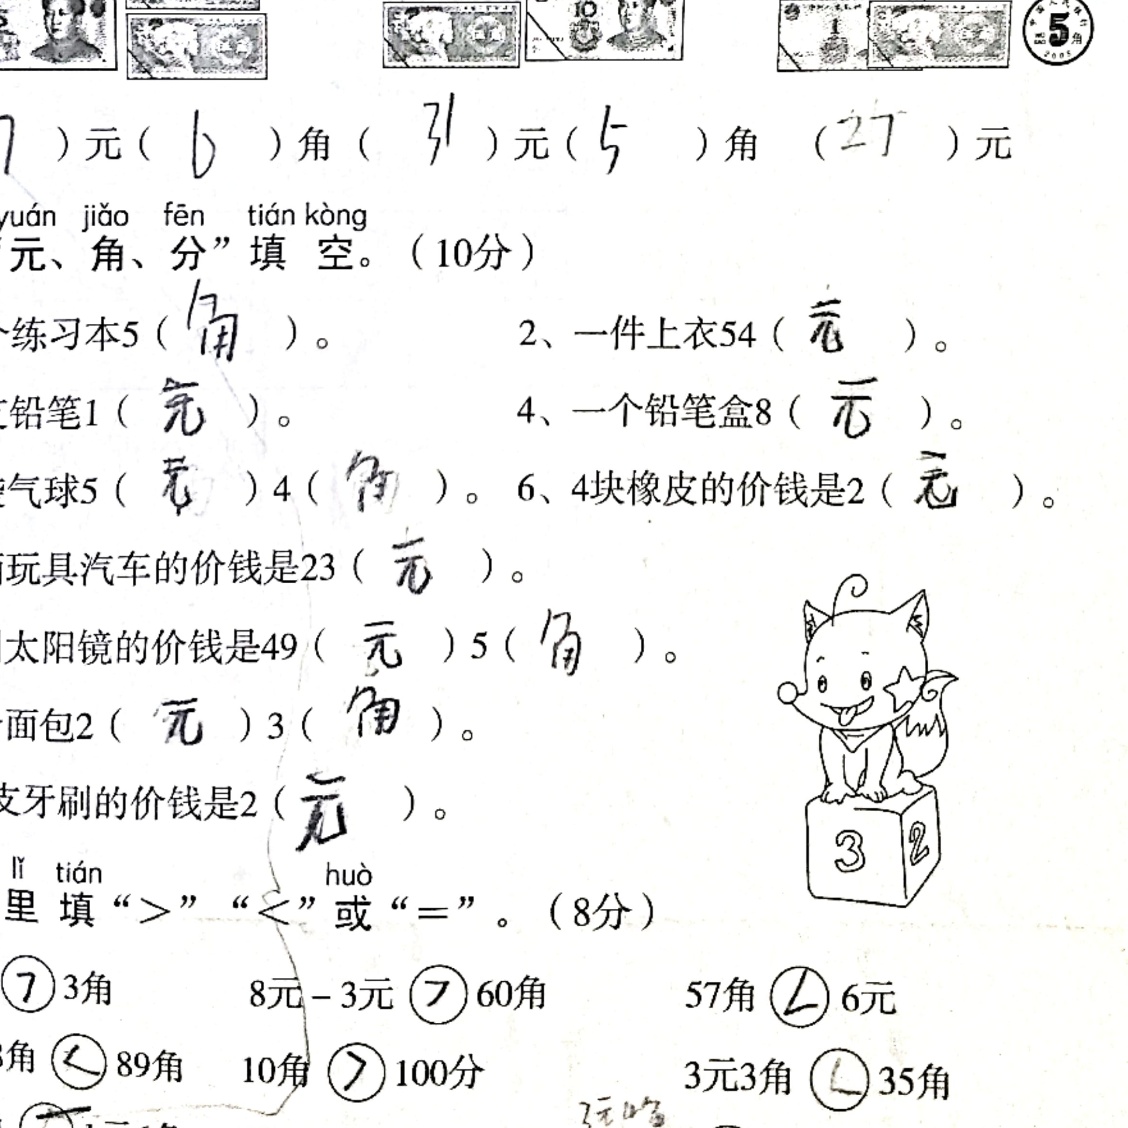 5角
）元（ 6 ）角（ 31 ）元（ 5 ）角 （ 27 ）元
yuán jiǎo fēn tián kòng
“元、角、分”填 空。（10分）
个练习本5（ 角 ）。 2、一件上衣54（ 元 ）。
支铅笔1（ 元 ）。 4、一个铅笔盒8（ 元 ）。
气球5（ 元 ）4（ 角 ）。 6、4块橡皮的价钱是2（ 元 ）。
玩具汽车的价钱是23（ 元 ）。
太阳镜的价钱是49（ 元 ）5（ 角 ）。
面包2（ 元 ）3（ 角 ）。
支牙刷的价钱是2（ 元 ）。
3 2
lǐ tián huò
里 填“＞”“＜”或“＝”。（8分）
> 3角 8元－3元 > 60角 57角 < 6元
角 < 89角 10角 > 100分 3元3角 < 35角